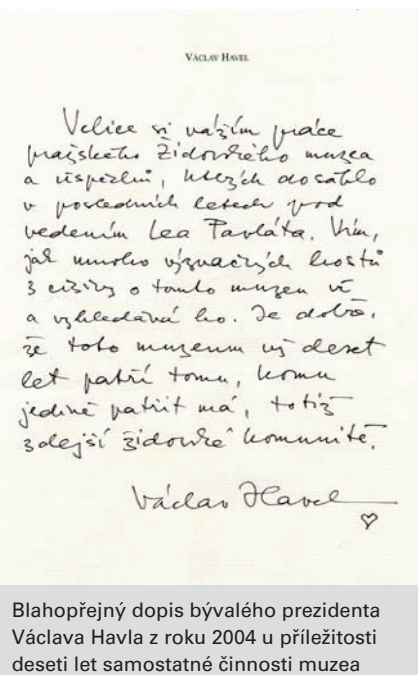 VÁCLAV HAVEL
Velice si vážím práce
pražského Židovského muzea
a úspěchů, kterých dosáhlo
v posledních letech pod
vedením Lea Pavláta. Vím,
jak mnoho význačných hostů
z ciziny o tomto muzeu ví
a vyhledává ho. Je dobře,
že toto muzeum už deset
let patří tomu, komu
jedině patřit má, totiž
zdejší židovské komunitě.
Václav Havel
Blahopřejný dopis bývalého prezidenta
Václava Havla z roku 2004 u příležitosti
deseti let samostatné činnosti muzea